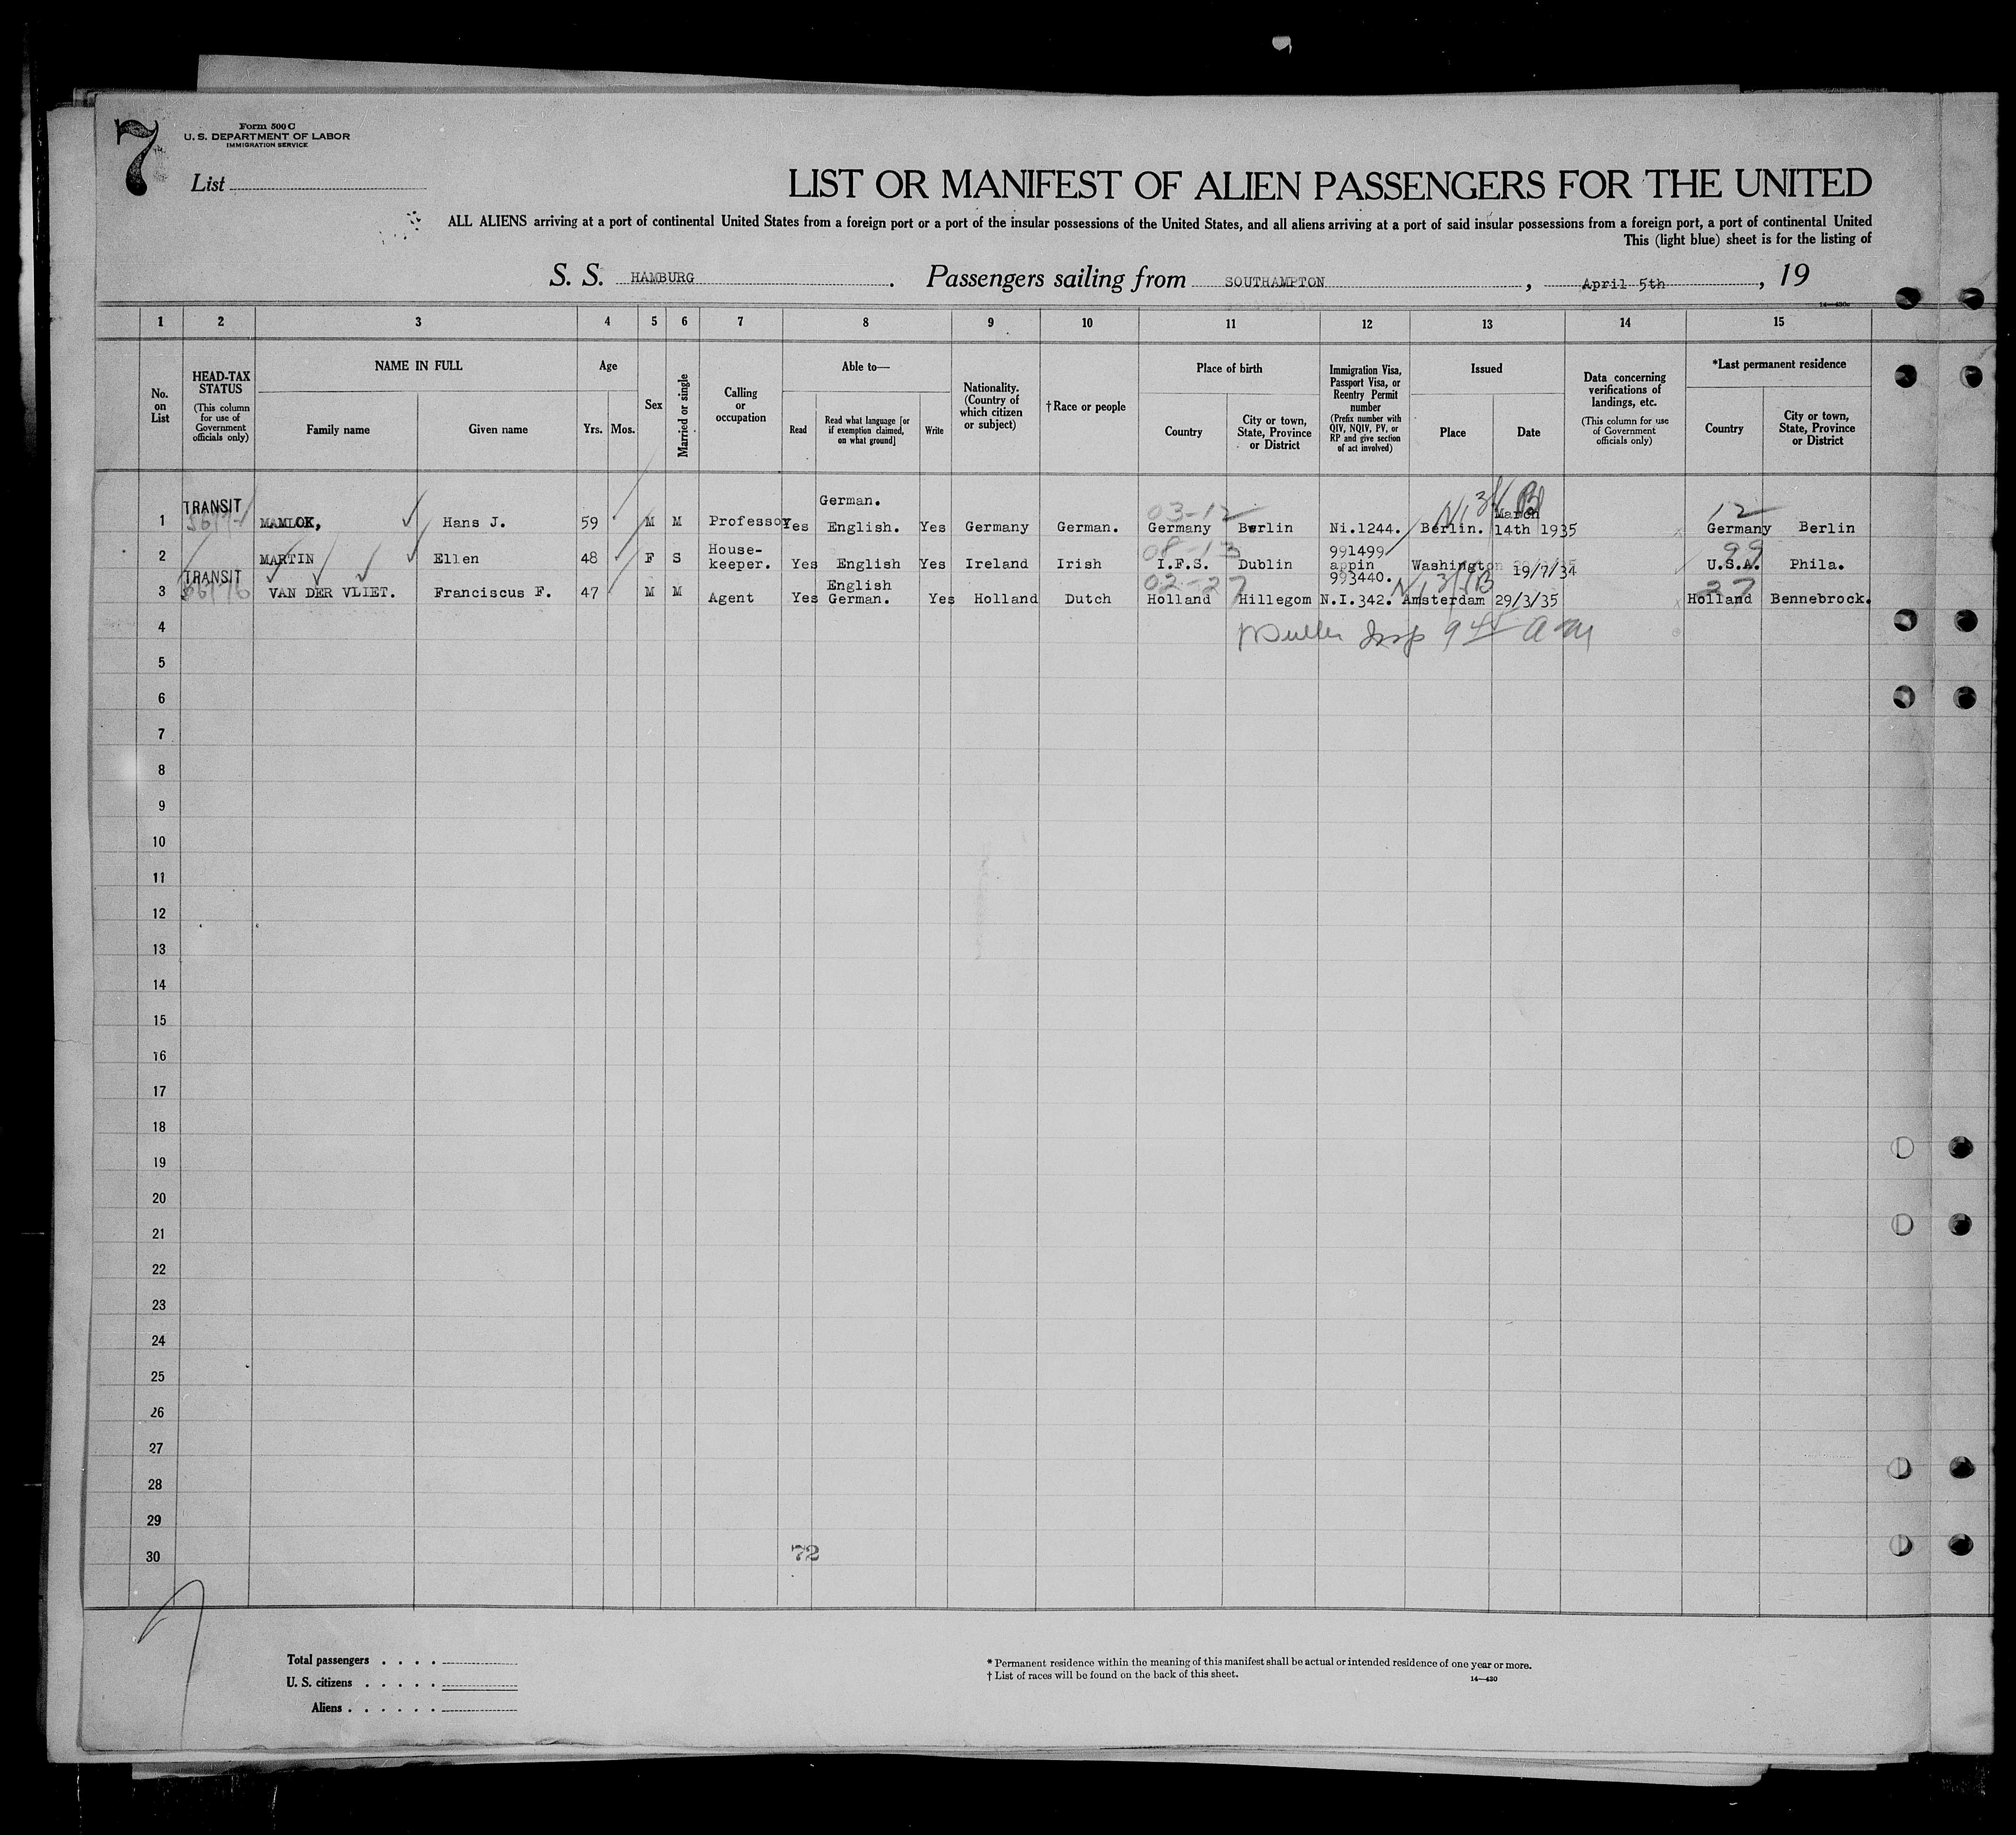 7
Form 500 C
U. S. DEPARTMENT OF LABOR
IMMIGRATION SERVICE
List
LIST OR MANIFEST OF ALIEN PASSENGERS FOR THE UNITED
ALL ALIENS arriving at a port of continental United States from a foreign port or a port of the insular possessions of the United States, and all aliens arriving at a port of said insular possessions from a foreign port, a port of continental United
This (light blue) sheet is for the listing of
S. S. HAMBURG. Passengers sailing from SOUTHAMPTON, April 5th, 19
1 2 3 4 5 6 7 8 9 10 11 12 13 14 15
No. on List
HEAD-TAX STATUS (This column for use of Government officials only)
NAME IN FULL
Family name Given name
Age
Yrs. Mos.
Sex
Married or single
Calling or occupation
Able to—
Read
Read what language [or if exemption claimed, on what ground]
Write
Nationality. (Country of which citizen or subject)
†Race or people
Place of birth
Country
City or town, State, Province or District
Immigration Visa, Passport Visa, or Reentry Permit number (Prefix number with QIV, NQIV, PV, or RP and give section of act involved)
Issued
Place Date
Data concerning verifications of landings, etc. (This column for use of Government officials only)
*Last permanent residence
Country
City or town, State, Province or District
1 TRANSIT MAMLOK, Hans J. 59 M M Professor Yes German. English. Yes Germany German. 03-12 Germany Berlin Ni.1244. Berlin. March 14th 1935 12 Germany Berlin
2 MARTIN Ellen 48 F S House-keeper. Yes English Yes Ireland Irish 08-13 I.F.S. Dublin 991499 appin 993440. Washington 19/7/34 99 U.S.A. Phila.
3 TRANSIT VAN DER VLIET. Franciscus F. 47 M M Agent Yes English German. Yes Holland Dutch 02-27 Holland Hillegom N.I.342. Amsterdam 29/3/35 27 Holland Bennebrock.
4 Insp 9 45 a m
5
6
7
8
9
10
11
12
13
14
15
16
17
18
19
20
21
22
23
24
25
26
27
28
29
30
72
7
Total passengers . . . .
U. S. citizens . . . . .
Aliens . . . . . .
* Permanent residence within the meaning of this manifest shall be actual or intended residence of one year or more.
† List of races will be found on the back of this sheet.
14—430